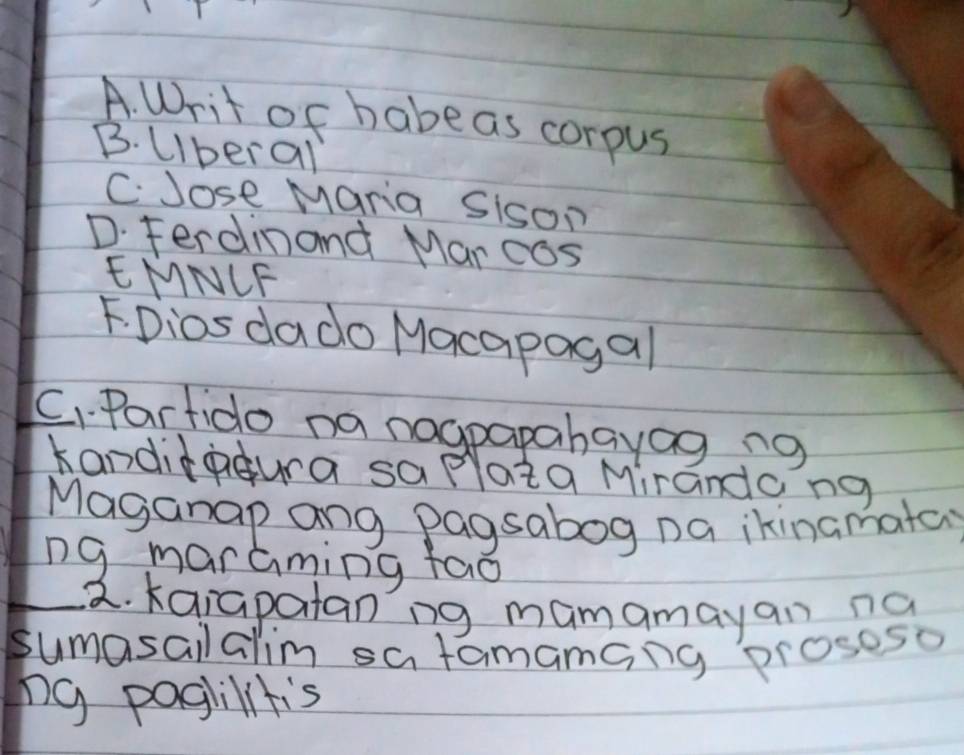 A. Writ of habeas corpus
B. Liberal
C. Jose Maria Sison
D. Ferdinand Marcos
E MNLF
F. Diosdado Macapagal
C 1. Partido na nagpapahayag ng
kanditadura sa Plaza Miranda ng
Maganap ang pagsabog na ikinamatay
ng maraming tao
___2. karapatan ng mamamayan na
sumasailalim sa tamamang proseso
ng paglilitis